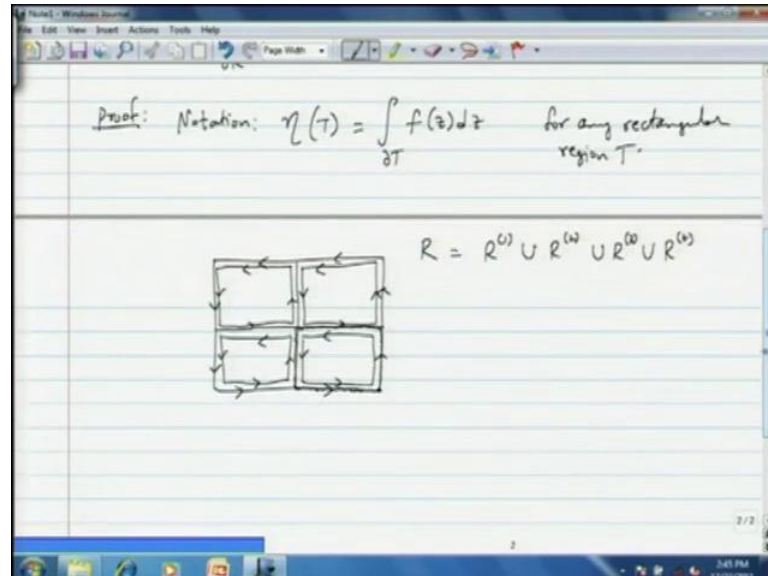 Note1 - Windows Journal
File Edit View Insert Actions Tools Help
Page Width
Proof: Notation: η(T) = ∫_{∂T} f(z)dz for any rectangular
region T.
R = R^{(1)} ∪ R^{(2)} ∪ R^{(3)} ∪ R^{(4)}
2/2
2
2:45 PM